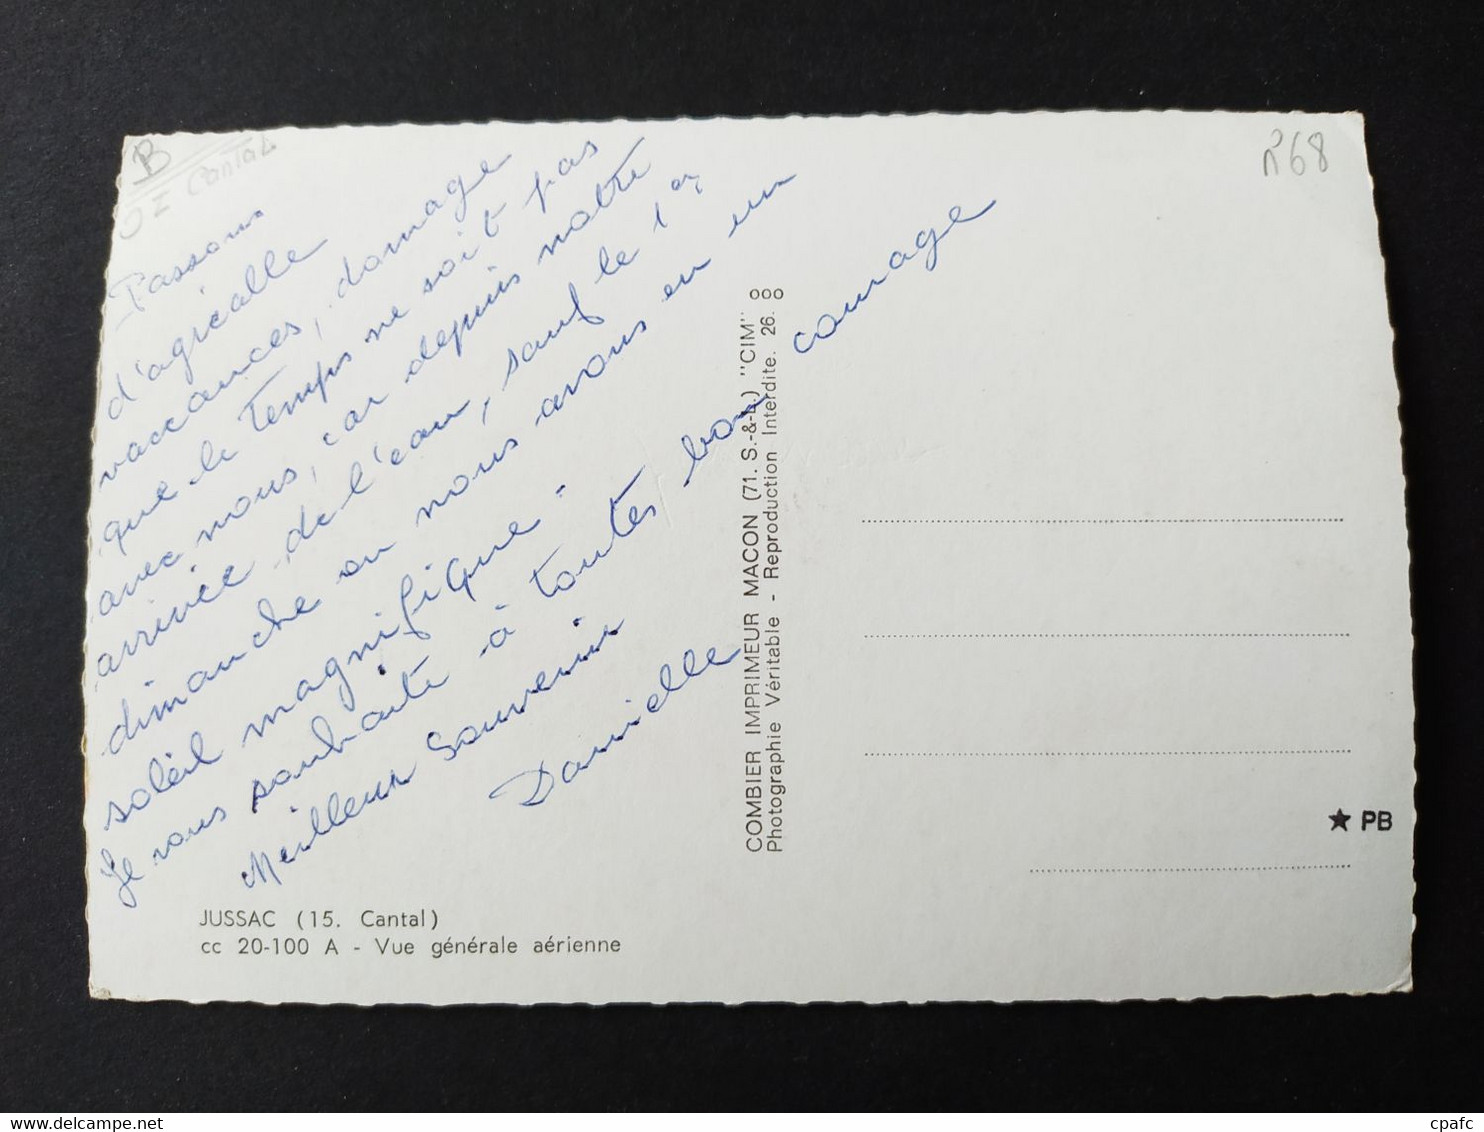 B
Cantal
R68
Passons
d'agréalle
vaccances, domage
que le temps ne soit pas
avec nous, car depuis notre
arrivée de l'eau, sauf le 1er
dimanche ou nous avons eu un
soleil magnifique.
Je vous souhaite à toutes bon courage
Meilleur Souvenir
Danielle
JUSSAC (15. Cantal)
cc 20-100 A - Vue générale aérienne
COMBIER IMPRIMEUR MACON (71. S.-&-L.) "CIM"
Photographie Véritable - Reproduction Interdite. 26.
★ PB
cpafc